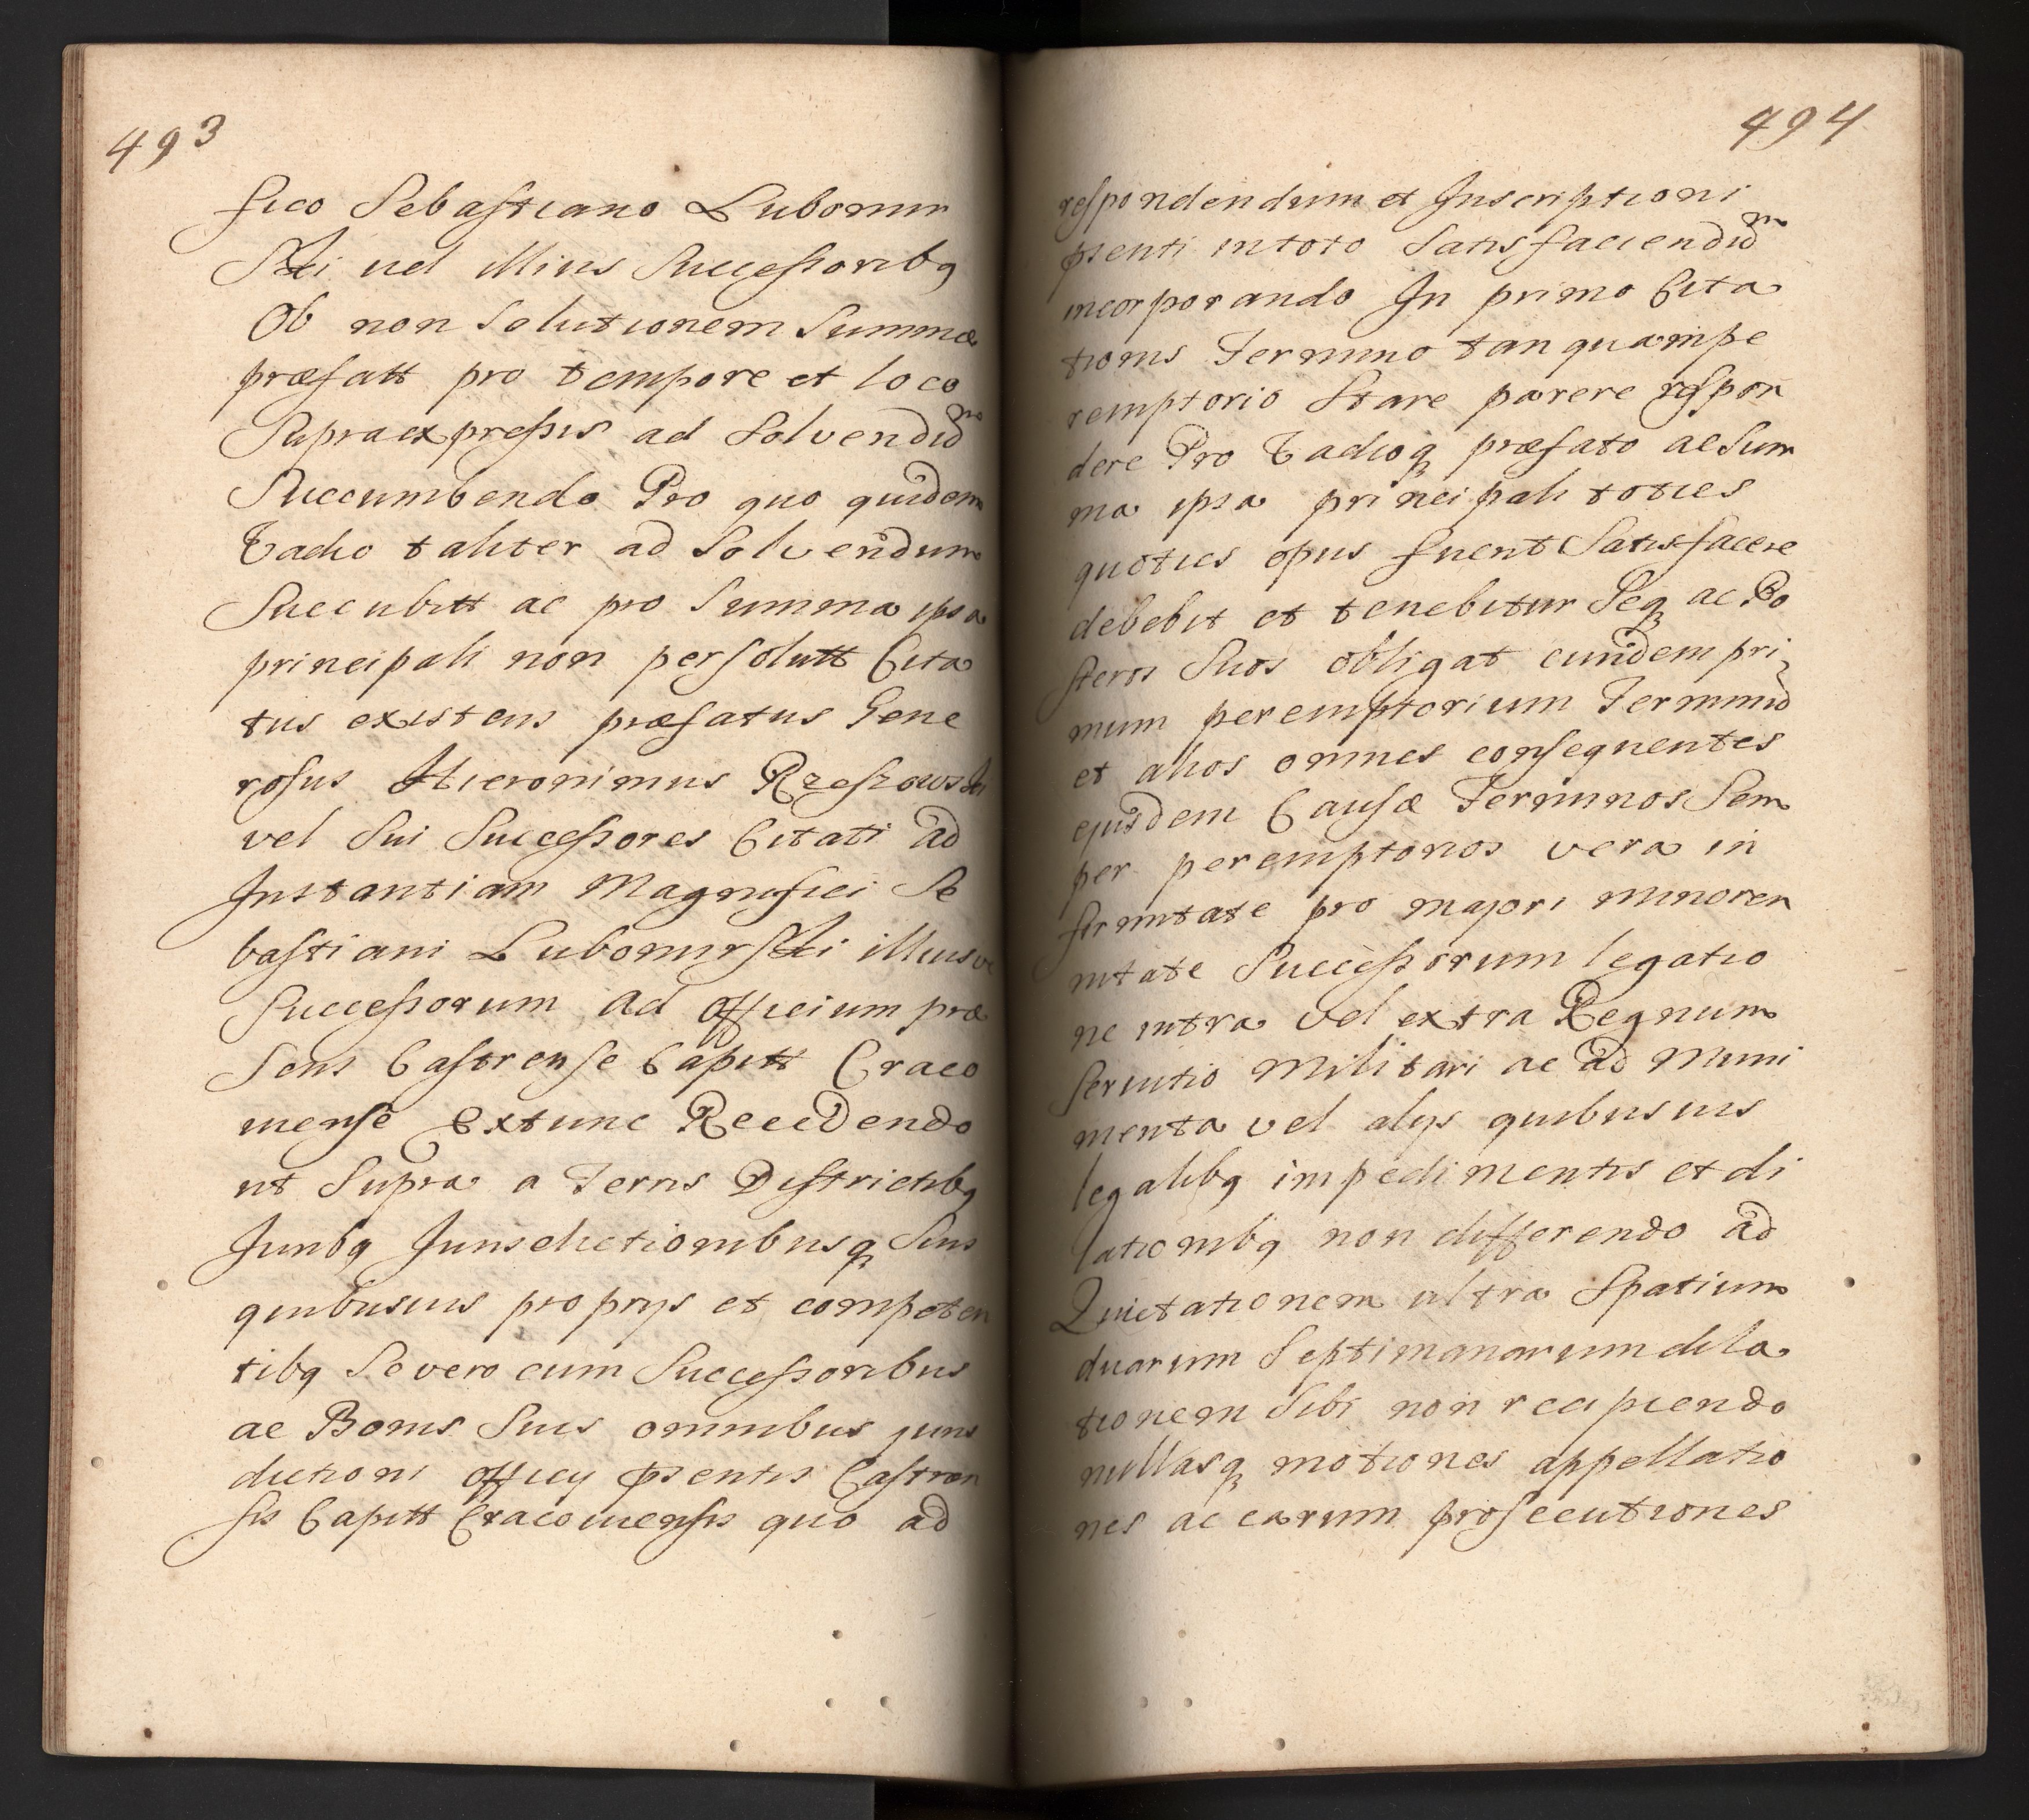 493
fico Sebastiano Lubomir
Ski vel illius Successoribq
Ob non Solutionem Summæ
præfatt pro tempore et loco
Supra expressis ad Solvendũ
Succumbendo Pro quo quidem
Vadio taliter ad Solvendum
Succubitt ac pro Summa ipsa
principali non persolutt Cita
tus existens præfatus Gene
rosus Hieronimus Rzeszowski
vel Sui Successores Citati ad
Instantiam Magnifici Se
bastiani Lubomirski illiusve
Successorum ad officium præ
Sens Castrense Capitt Craco
viense Extunc Recedendo
ut Supra a Terris Districtibq
Juribq Jurisdictionibusq Suis
quibusvis proprijs et competen
tibq Se vero cum Successoribus
ac Bonis Suis omnibus juris
dictioni officij pſentis Castren
sis Capitt Cracoviensis quo ad
494
respondendum et Inscriptioni
pſenti in toto Satisfaciendũ
incorporando In primo Cita
tionis Termino tanquam pe
remptorio Stare parere respon
dere Pro Vadioq præfato ac Sum
ma ipsa principali toties
quoties opus fuerit Satisfacere
debebit et tenebitur Seq ac Po
steros Suos obligat eundem pri
mum peremptorium Terminũ
et alios omnes consequentes
ejusdem Causæ Terminos Sem
per peremptorios vera in
firmitate pro majori minoren
nitate Successorum legatio
ne intra vel extra Regnum
servitio Militari ac ad Muni
menta vel alijs quibusvis
legalibq impedimentis et di
lationibq non differendo ad
Quietationem ultra Spatium
duarum Septimanarum dila
tionem Sibi non recipiendo
nullasq motiones appellatio
nes ac earum prosecutiones